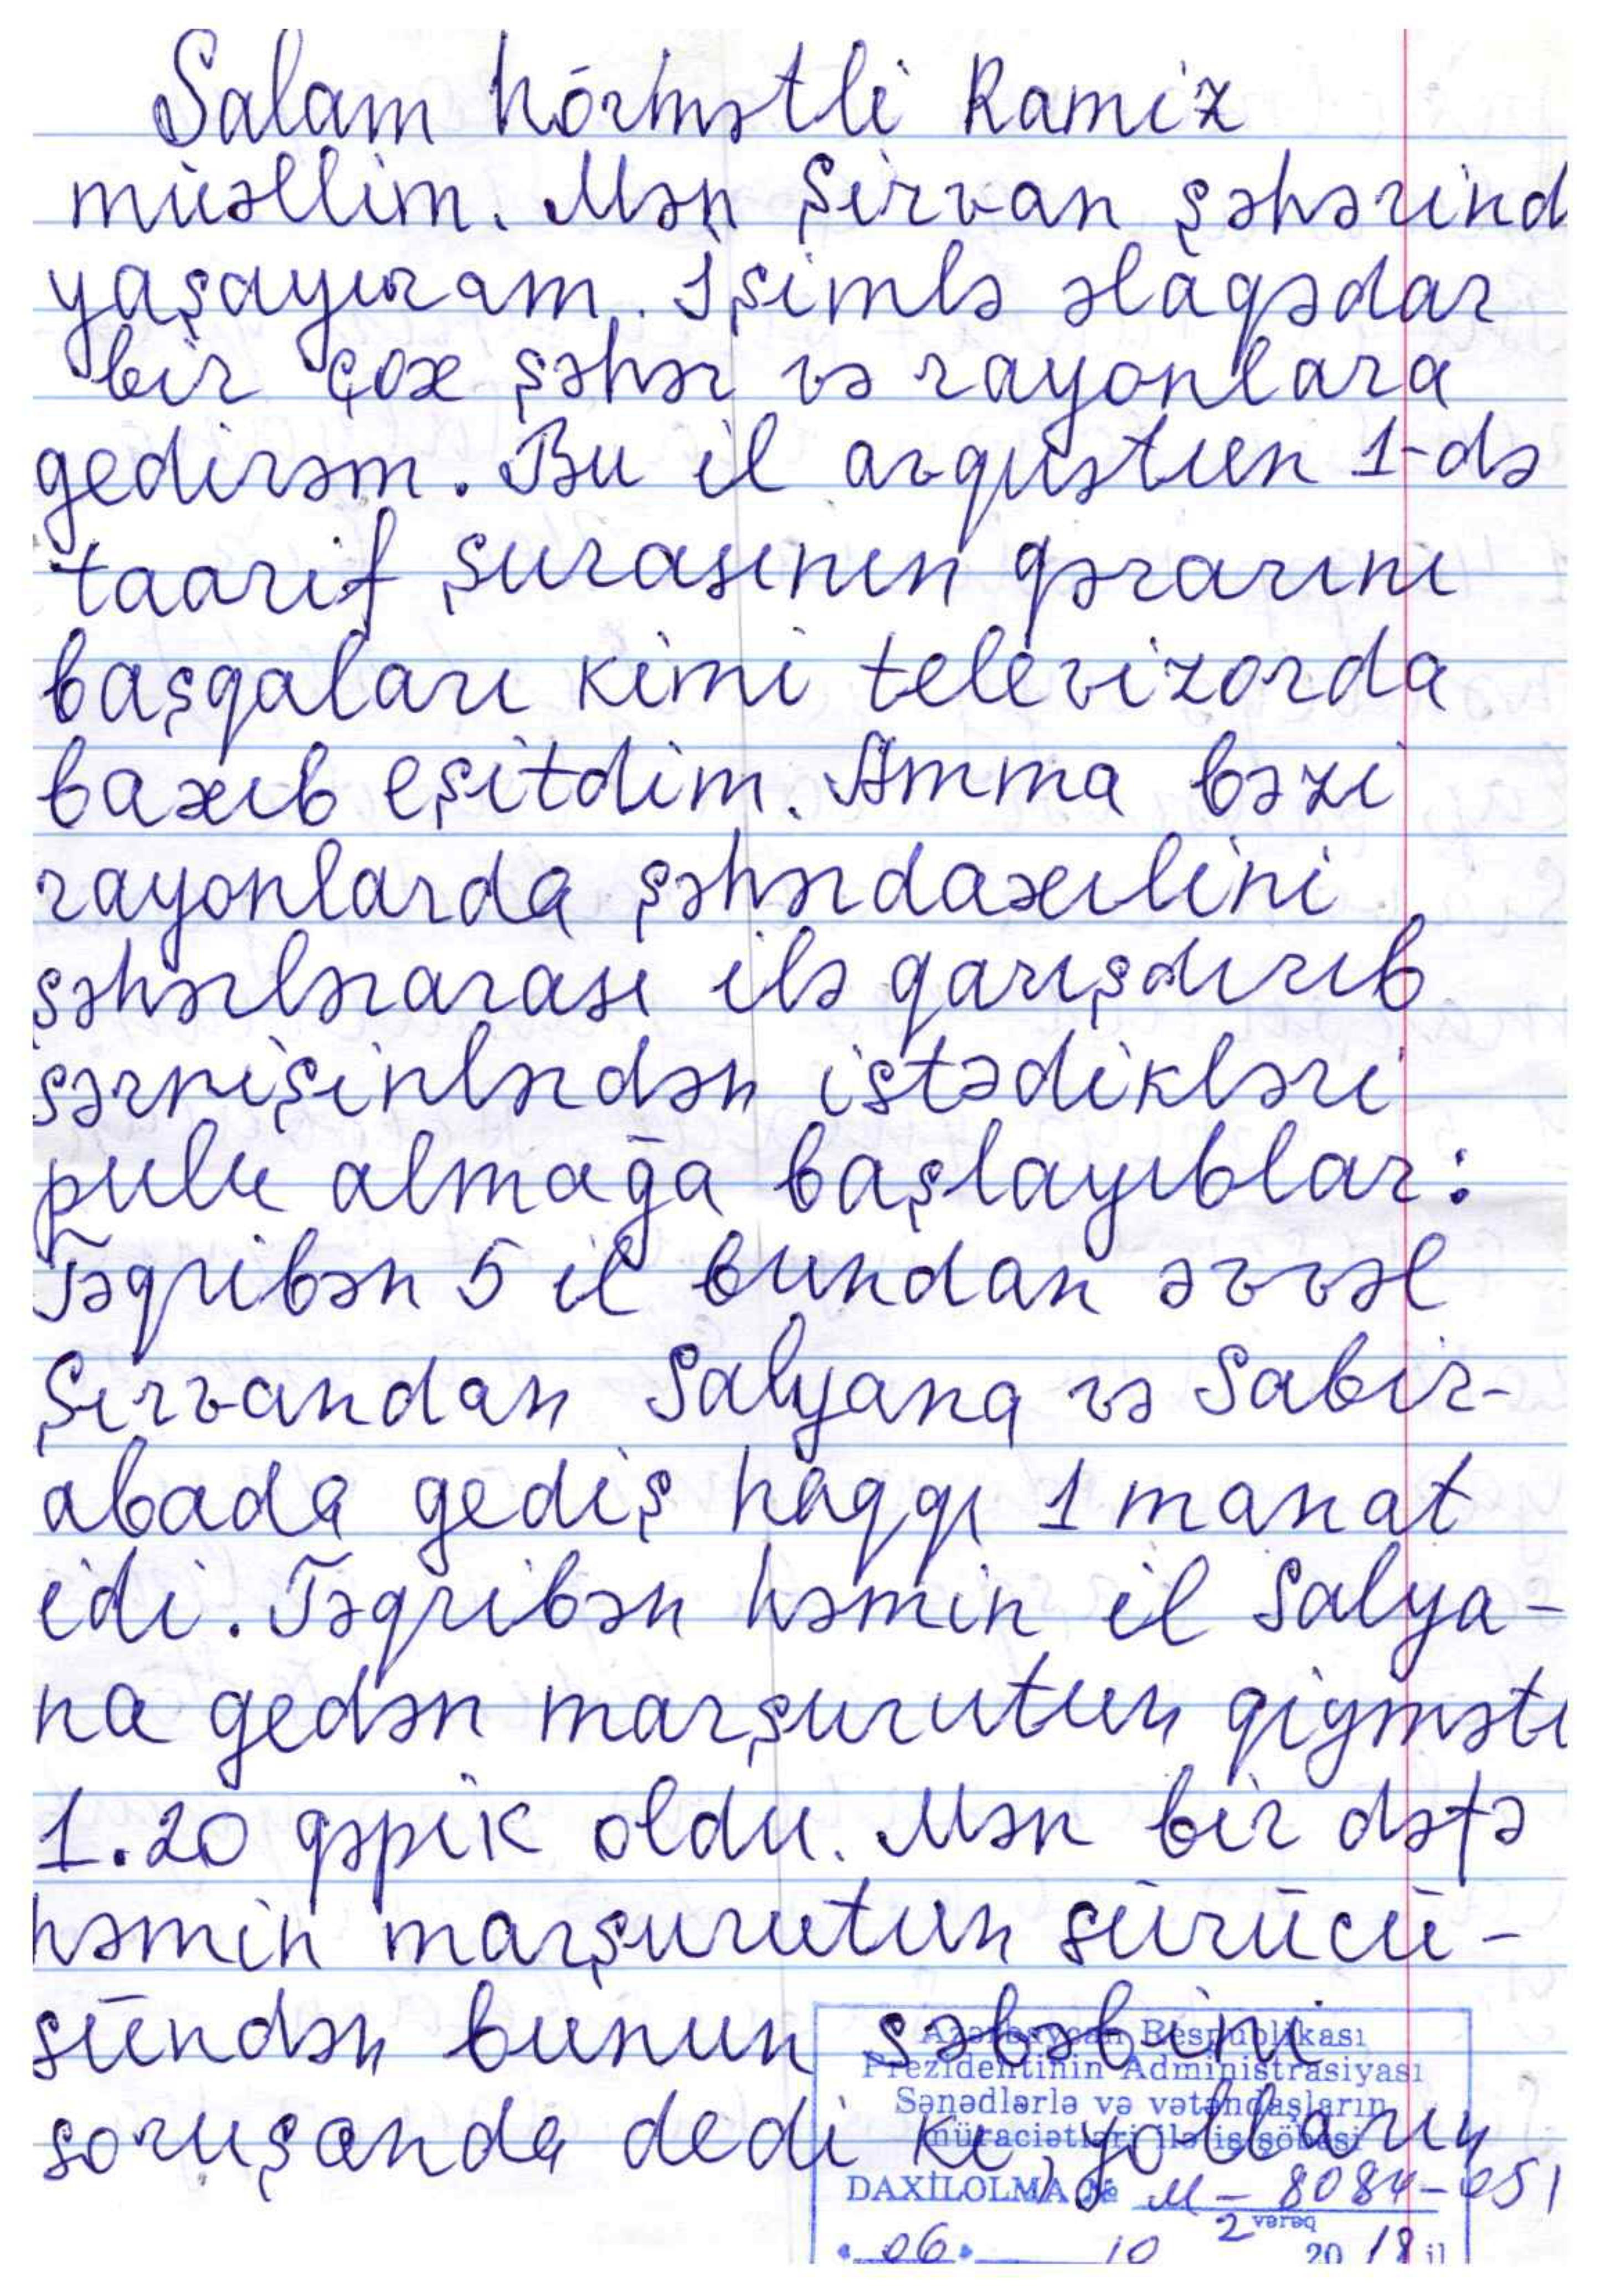 Salam hörmətli Ramiz
müəllim. Mən Şirvan şəhərind
yaşayıram. İşimlə əlaqədar
bir çox şəhər və rayonlara
gedirəm. Bu il avqustun 1-də
taarif şurasının qərarını
başqaları kimi televizorda
baxıb eşitdim. Amma bəzi
rayonlarda şəhərdaxılini
şəhərlərarası ilə qarışdırıb
sərnişinlərdən istədikləri
pulu almağa başlayıblar:
Təqribən 5 il bundan əvvəl
Şirvandan Salyana və Sabir-
abada gediş haqqı 1 manat
idi. Təqribən həmin il Salya-
na gedən marşurutun qiyməti
1.20 qəpik oldu. Mən bir dəfə
həmin marşurutun sürücü-
sündən bunun səbəbini
soruşanda dedi ki, yolların
Azərbaycan Respublikası
Prezidentinin Administrasiyası
Sənədlərlə və vətəndaşların
müraciətləri ilə iş şöbəsi
DAXİLOLMA № M-8084-051
2 vərəq
06 10 2018 il